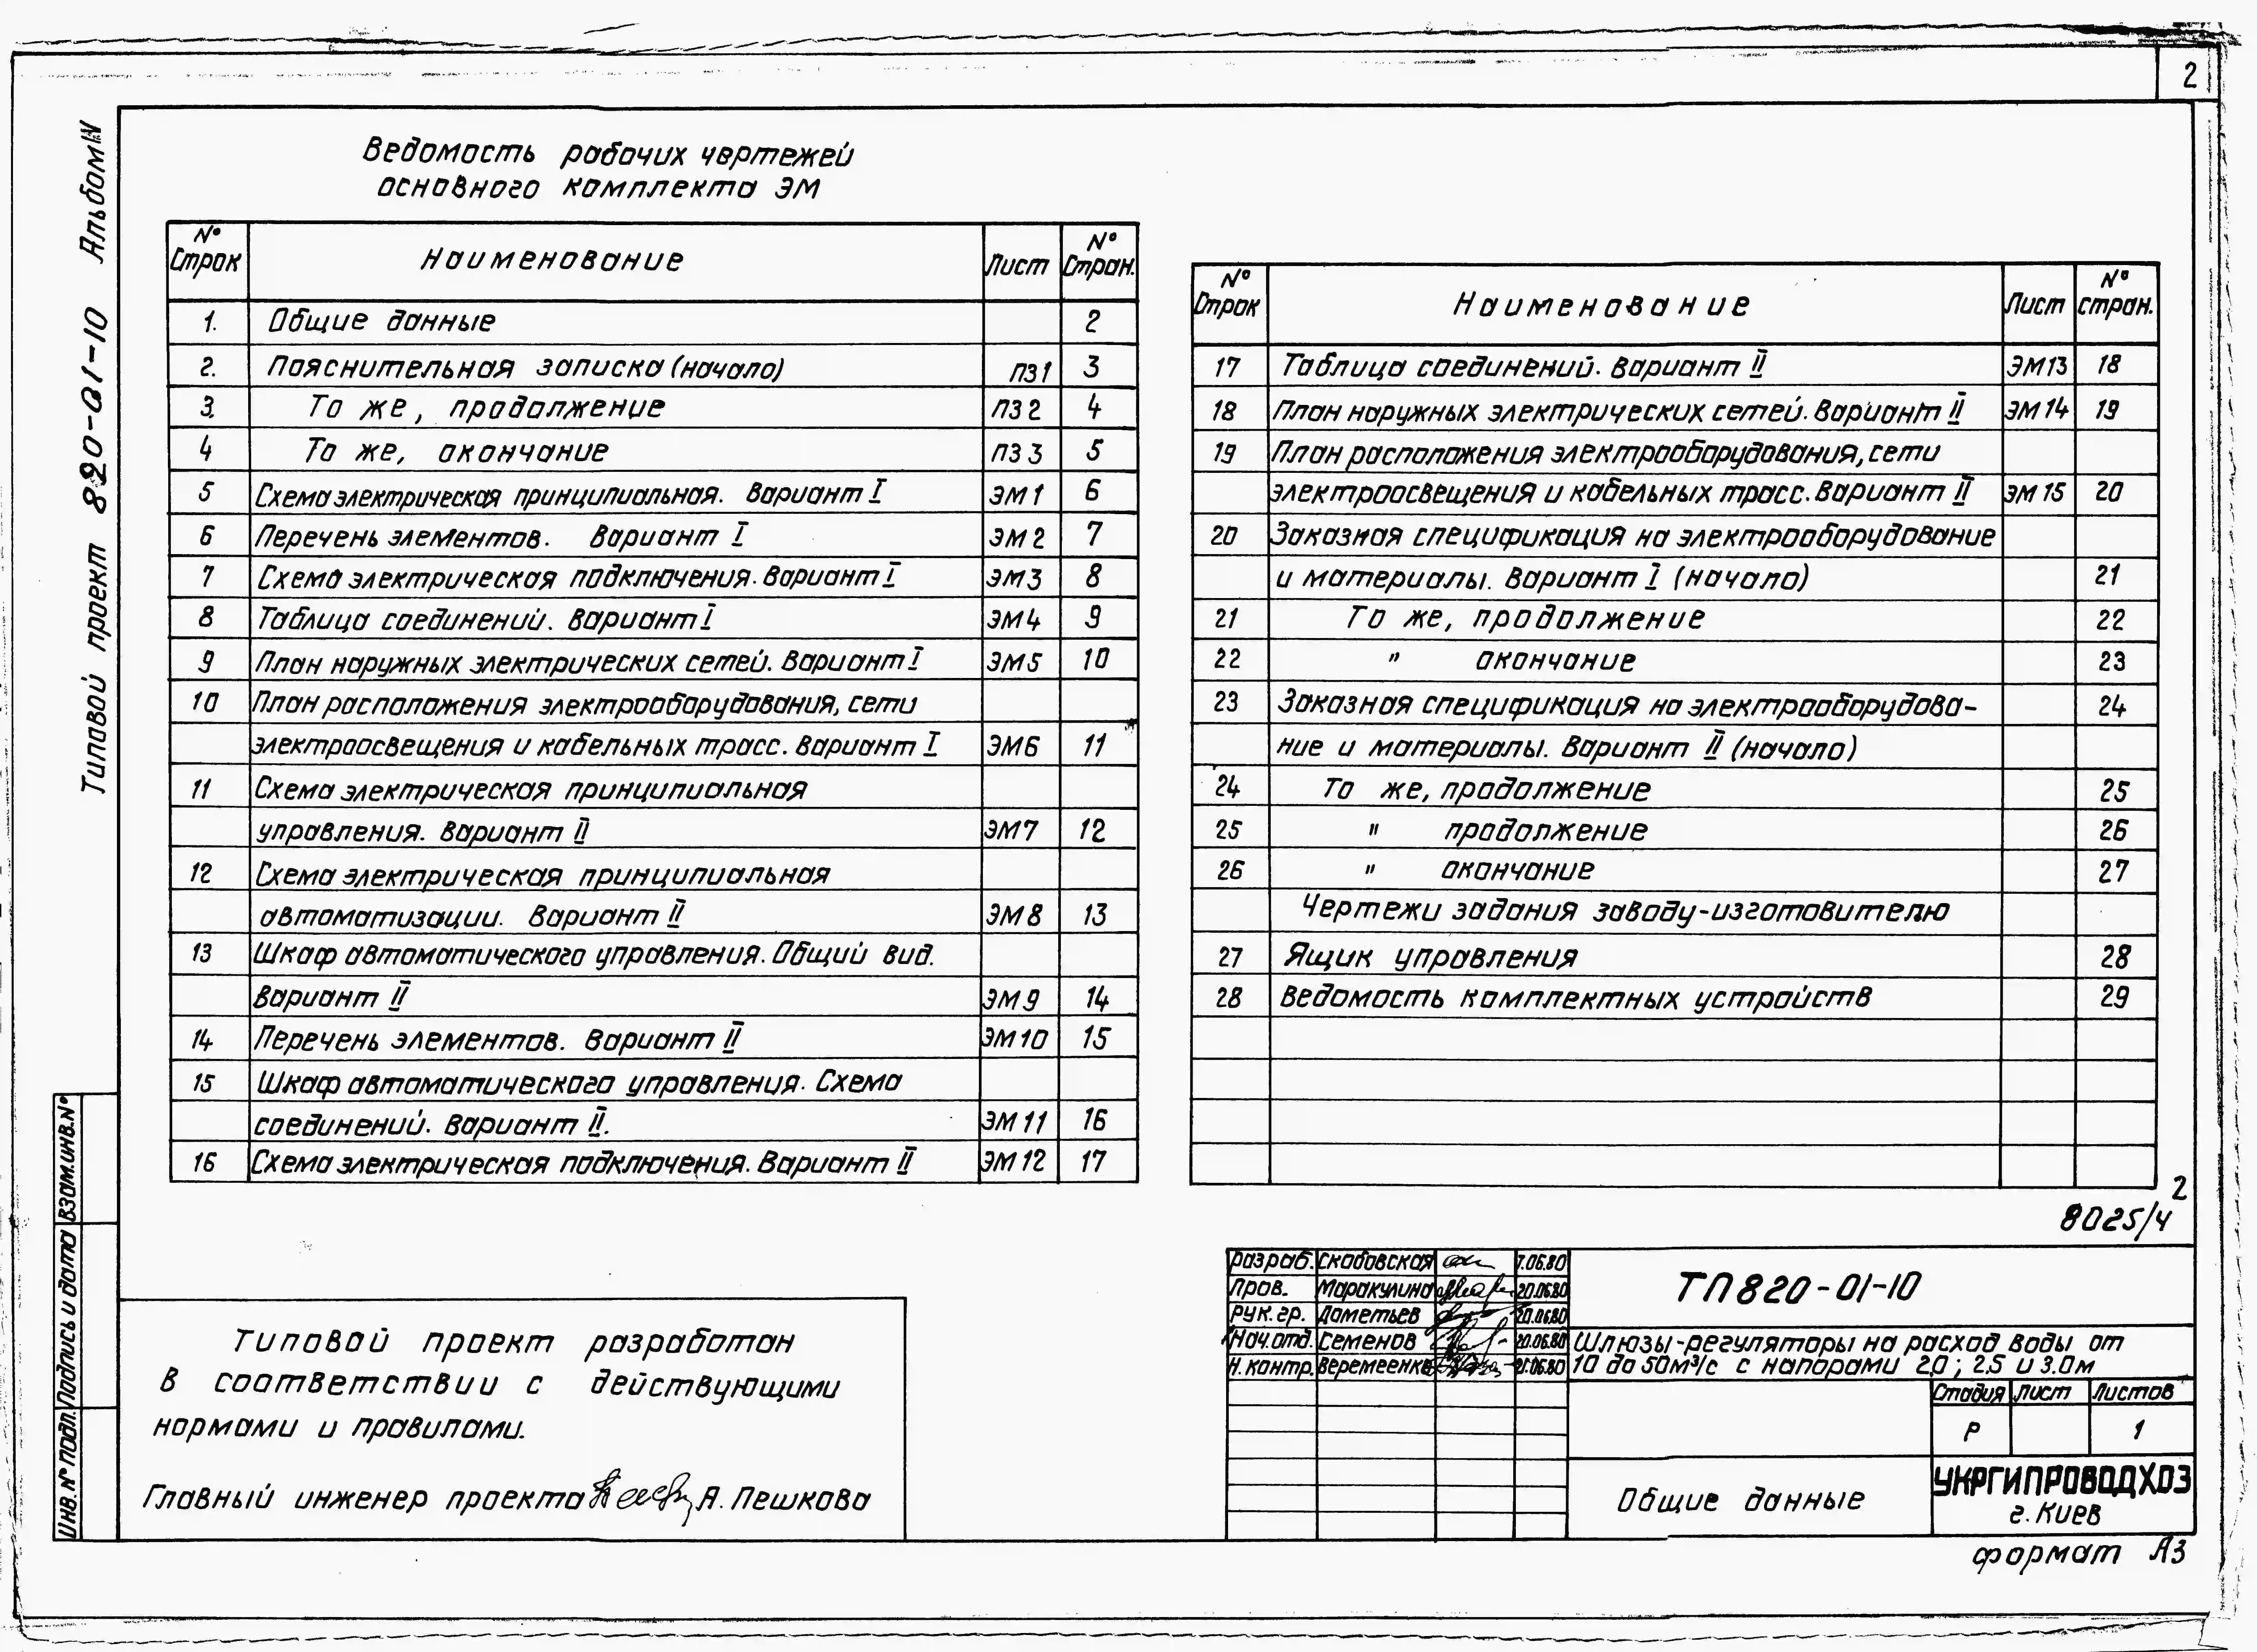 2
Типовой проект 820-01-10 Альбом IV
Ведомость рабочих чертежей
основного комплекта ЭМ
№ Строк Наименование Лист № Стран.
1. Общие данные 2
2. Пояснительная записка (начало) ПЗ1 3
3. То же, продолжение ПЗ2 4
4 То же, окончание ПЗ3 5
5 Схема электрическая принципиальная. Вариант I ЭМ1 6
6 Перечень элементов. Вариант I ЭМ2 7
7 Схема электрическая подключения. Вариант I ЭМ3 8
8 Таблица соединений. Вариант I ЭМ4 9
9 План наружных электрических сетей. Вариант I ЭМ5 10
10 План расположения электрооборудования, сети
электроосвещения и кабельных трасс. Вариант I ЭМ6 11
11 Схема электрическая принципиальная
управления. Вариант II ЭМ7 12
12 Схема электрическая принципиальная
автоматизации. Вариант II ЭМ8 13
13 Шкаф автоматического управления. Общий вид.
Вариант II ЭМ9 14
14 Перечень элементов. Вариант II ЭМ10 15
15 Шкаф автоматического управления. Схема
соединений. Вариант II. ЭМ11 16
16 Схема электрическая подключения. Вариант II ЭМ12 17
№ Строк Наименование Лист № стран.
17 Таблица соединений. Вариант II ЭМ13 18
18 План наружных электрических сетей. Вариант II ЭМ14 19
19 План расположения электрооборудования, сети
электроосвещения и кабельных трасс. Вариант II ЭМ15 20
20 Заказная спецификация на электрооборудование
и материалы. Вариант I (начало) 21
21 То же, продолжение 22
22 " окончание 23
23 Заказная спецификация на электрооборудова- 24
ние и материалы. Вариант II (начало)
24 То же, продолжение 25
25 " продолжение 26
26 " окончание 27
Чертежи задания заводу-изготовителю
27 Ящик управления 28
28 Ведомость комплектных устройств 29
2
8025/4
Типовой проект разработан
в соответствии с действующими
нормами и правилами.
Главный инженер проекта А. Пешкова
Разраб. Скабовская 7.06.80
Пров. Маракулина 20.06.80
Рук. гр. Дометьев 20.06.80
Нач. отд. Семенов 20.06.80
Н. контр. Веремеенко 21.06.80
ТП820-01-10
Шлюзы-регуляторы на расход воды от
10 до 50м³/с с напорами 2.0; 2.5 и 3.0м
Стадия Лист Листов
Р 1
Общие данные
УКРГИПРОВОДХОЗ
г. Киев
формат А3
Инв. № подл. Подпись и дата Взам. инв. №